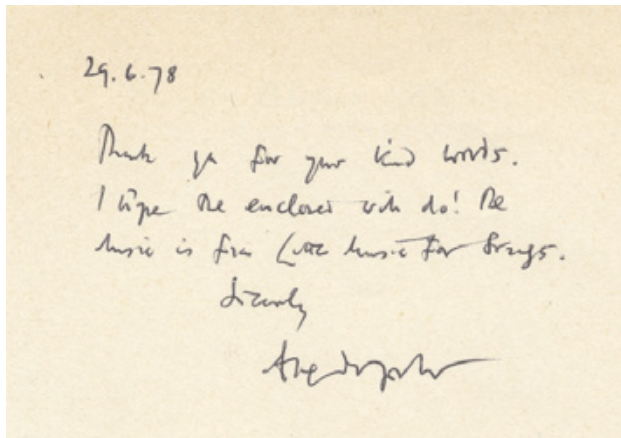 29.6.78
Thank you for your kind words.
I hope the enclosed will do! The
music is from Little Music for Strings.
Sincerely